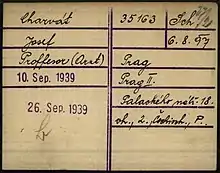 Charvát 35163 Sch
Josef 6. 8. 97
Proffesor (Arzt) Prag
10. Sep. 1939 Prag II.
26. Sep. 1939 Palackého nábř. 18.
vh., 2., P.